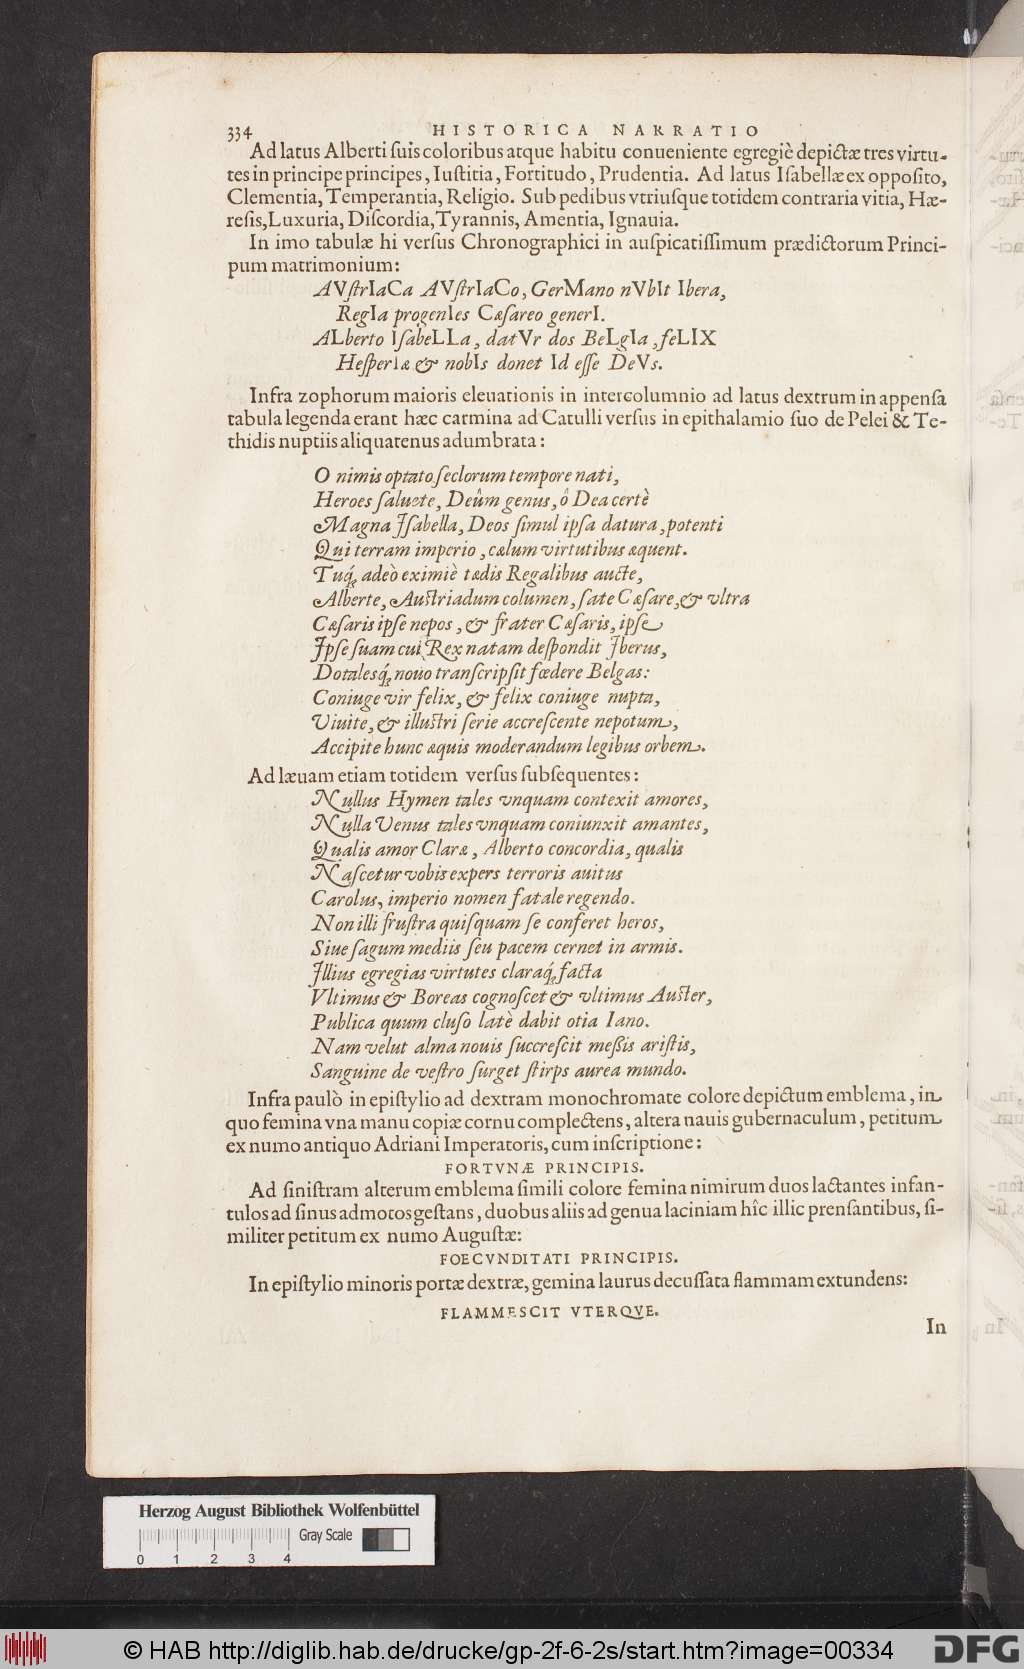 334 HISTORICA NARRATIO
Ad latus Alberti ſuis coloribus atque habitu conueniente egregiè depictæ tres virtu-
tes in principe principes, Iuſtitia, Fortitudo, Prudentia. Ad latus Iſabellæ ex oppoſito,
Clementia, Temperantia, Religio. Sub pedibus vtriuſque totidem contraria vitia, Hæ-
reſis, Luxuria, Diſcordia, Tyrannis, Amentia, Ignauia.
In imo tabulæ hi verſus Chronographici in auſpicatiſſimum prædictorum Princi-
pum matrimonium:
AVſtrIaCa AVſtrIaCo, GerMano nVbIt Ibera,
RegIa progenIes Cæſareo generI.
ALberto IſabeLLa, datVr dos BeLgIa, feLIX
HeſperIæ & nobIs donet Id eſſe DeVs.
Infra zophorum maioris eleuationis in intercolumnio ad latus dextrum in appenſa
tabula legenda erant hæc carmina ad Catulli verſus in epithalamio ſuo de Pelei & Te-
thidis nuptiis aliquatenus adumbrata:
O nimis optato ſeclorum tempore nati,
Heroes ſaluete, Deûm genus, ô Dea certè
Magna Iſabella, Deos ſimul ipſa datura, potenti
Qui terram imperio, cælum virtutibus æquent.
Tuq́; adeò eximiè tædis Regalibus aucte,
Alberte, Auſtriadum columen, ſate Cæſare, & vltra
Cæſaris ipſe nepos, & frater Cæſaris, ipſe
Ipſe ſuam cui Rex natam deſpondit Iberus,
Dotalesq́; nouo tranſcripſit fœdere Belgas:
Coniuge vir felix, & felix coniuge nupta,
Viuite, & illuſtri ſerie accreſcente nepotum,
Accipite hunc æquis moderandum legibus orbem.
Ad læuam etiam totidem verſus ſubſequentes:
Nullus Hymen tales vnquam contexit amores,
Nulla Venus tales vnquam coniunxit amantes,
Qualis amor Claræ, Alberto concordia, qualis
Naſcetur vobis expers terroris auitus
Carolus, imperio nomen fatale regendo.
Non illi fruſtra quiſquam ſe conferet heros,
Siue ſagum mediis ſeu pacem cernet in armis.
Illius egregias virtutes claraq́; facta
Vltimus & Boreas cognoſcet & vltimus Auſter,
Publica quum cluſo latè dabit otia Iano.
Nam velut alma nouis ſuccreſcit meßis ariſtis,
Sanguine de veſtro ſurget ſtirps aurea mundo.
Infra paulò in epiſtylio ad dextram monochromate colore depictum emblema, in
quo femina vna manu copiæ cornu complectens, altera nauis gubernaculum, petitum
ex numo antiquo Adriani Imperatoris, cum inſcriptione:
FORTVNÆ PRINCIPIS.
Ad ſiniſtram alterum emblema ſimili colore femina nimirum duos lactantes infan-
tulos ad ſinus admotos geſtans, duobus aliis ad genua laciniam hîc illic prenſantibus, ſi-
militer petitum ex numo Auguſtæ:
FOECVNDITATI PRINCIPIS.
In epiſtylio minoris portæ dextræ, gemina laurus decuſſata flammam extundens:
FLAMMESCIT VTERQVE.
In
Herzog August Bibliothek Wolfenbüttel
Gray Scale
0 1 2 3 4
© HAB http://diglib.hab.de/drucke/gp-2f-6-2s/start.htm?image=00334
DFG